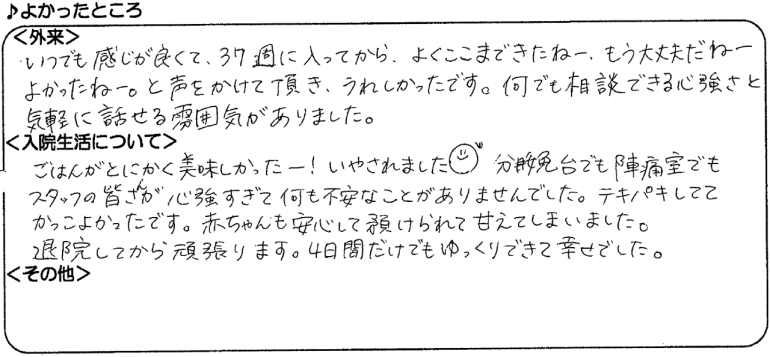 ♪よかったところ
<外来>
いつでも感じが良くて、37週に入ってから、よくここまできたねー、もう大丈夫だねー
よかったねー。と声をかけて頂き、うれしかったです。何でも相談できる心強さと
気軽に話せる雰囲気がありました。
<入院生活について>
ごはんがとにかく美味しかったー！いやされました 分娩台でも陣痛室でも
スタッフの皆さんが心強すぎて何も不安なことがありませんでした。テキパキしてて
かっこよかったです。赤ちゃんも安心して預けられて甘えてしまいました。
退院してから頑張ります。4日間だけでもゆっくりできて幸せでした。
<その他>